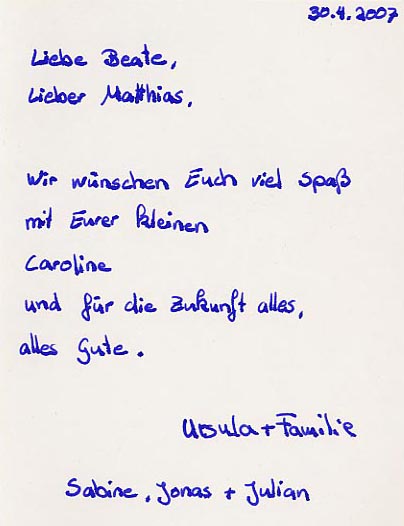 30.4.2007
Liebe Beate,
Lieber Matthias,
Wir wünschen Euch viel Spaß
mit Eurer kleinen
Caroline
und für die Zukunft alles,
alles Gute.
Ursula + Familie
Sabine, Jonas + Julian